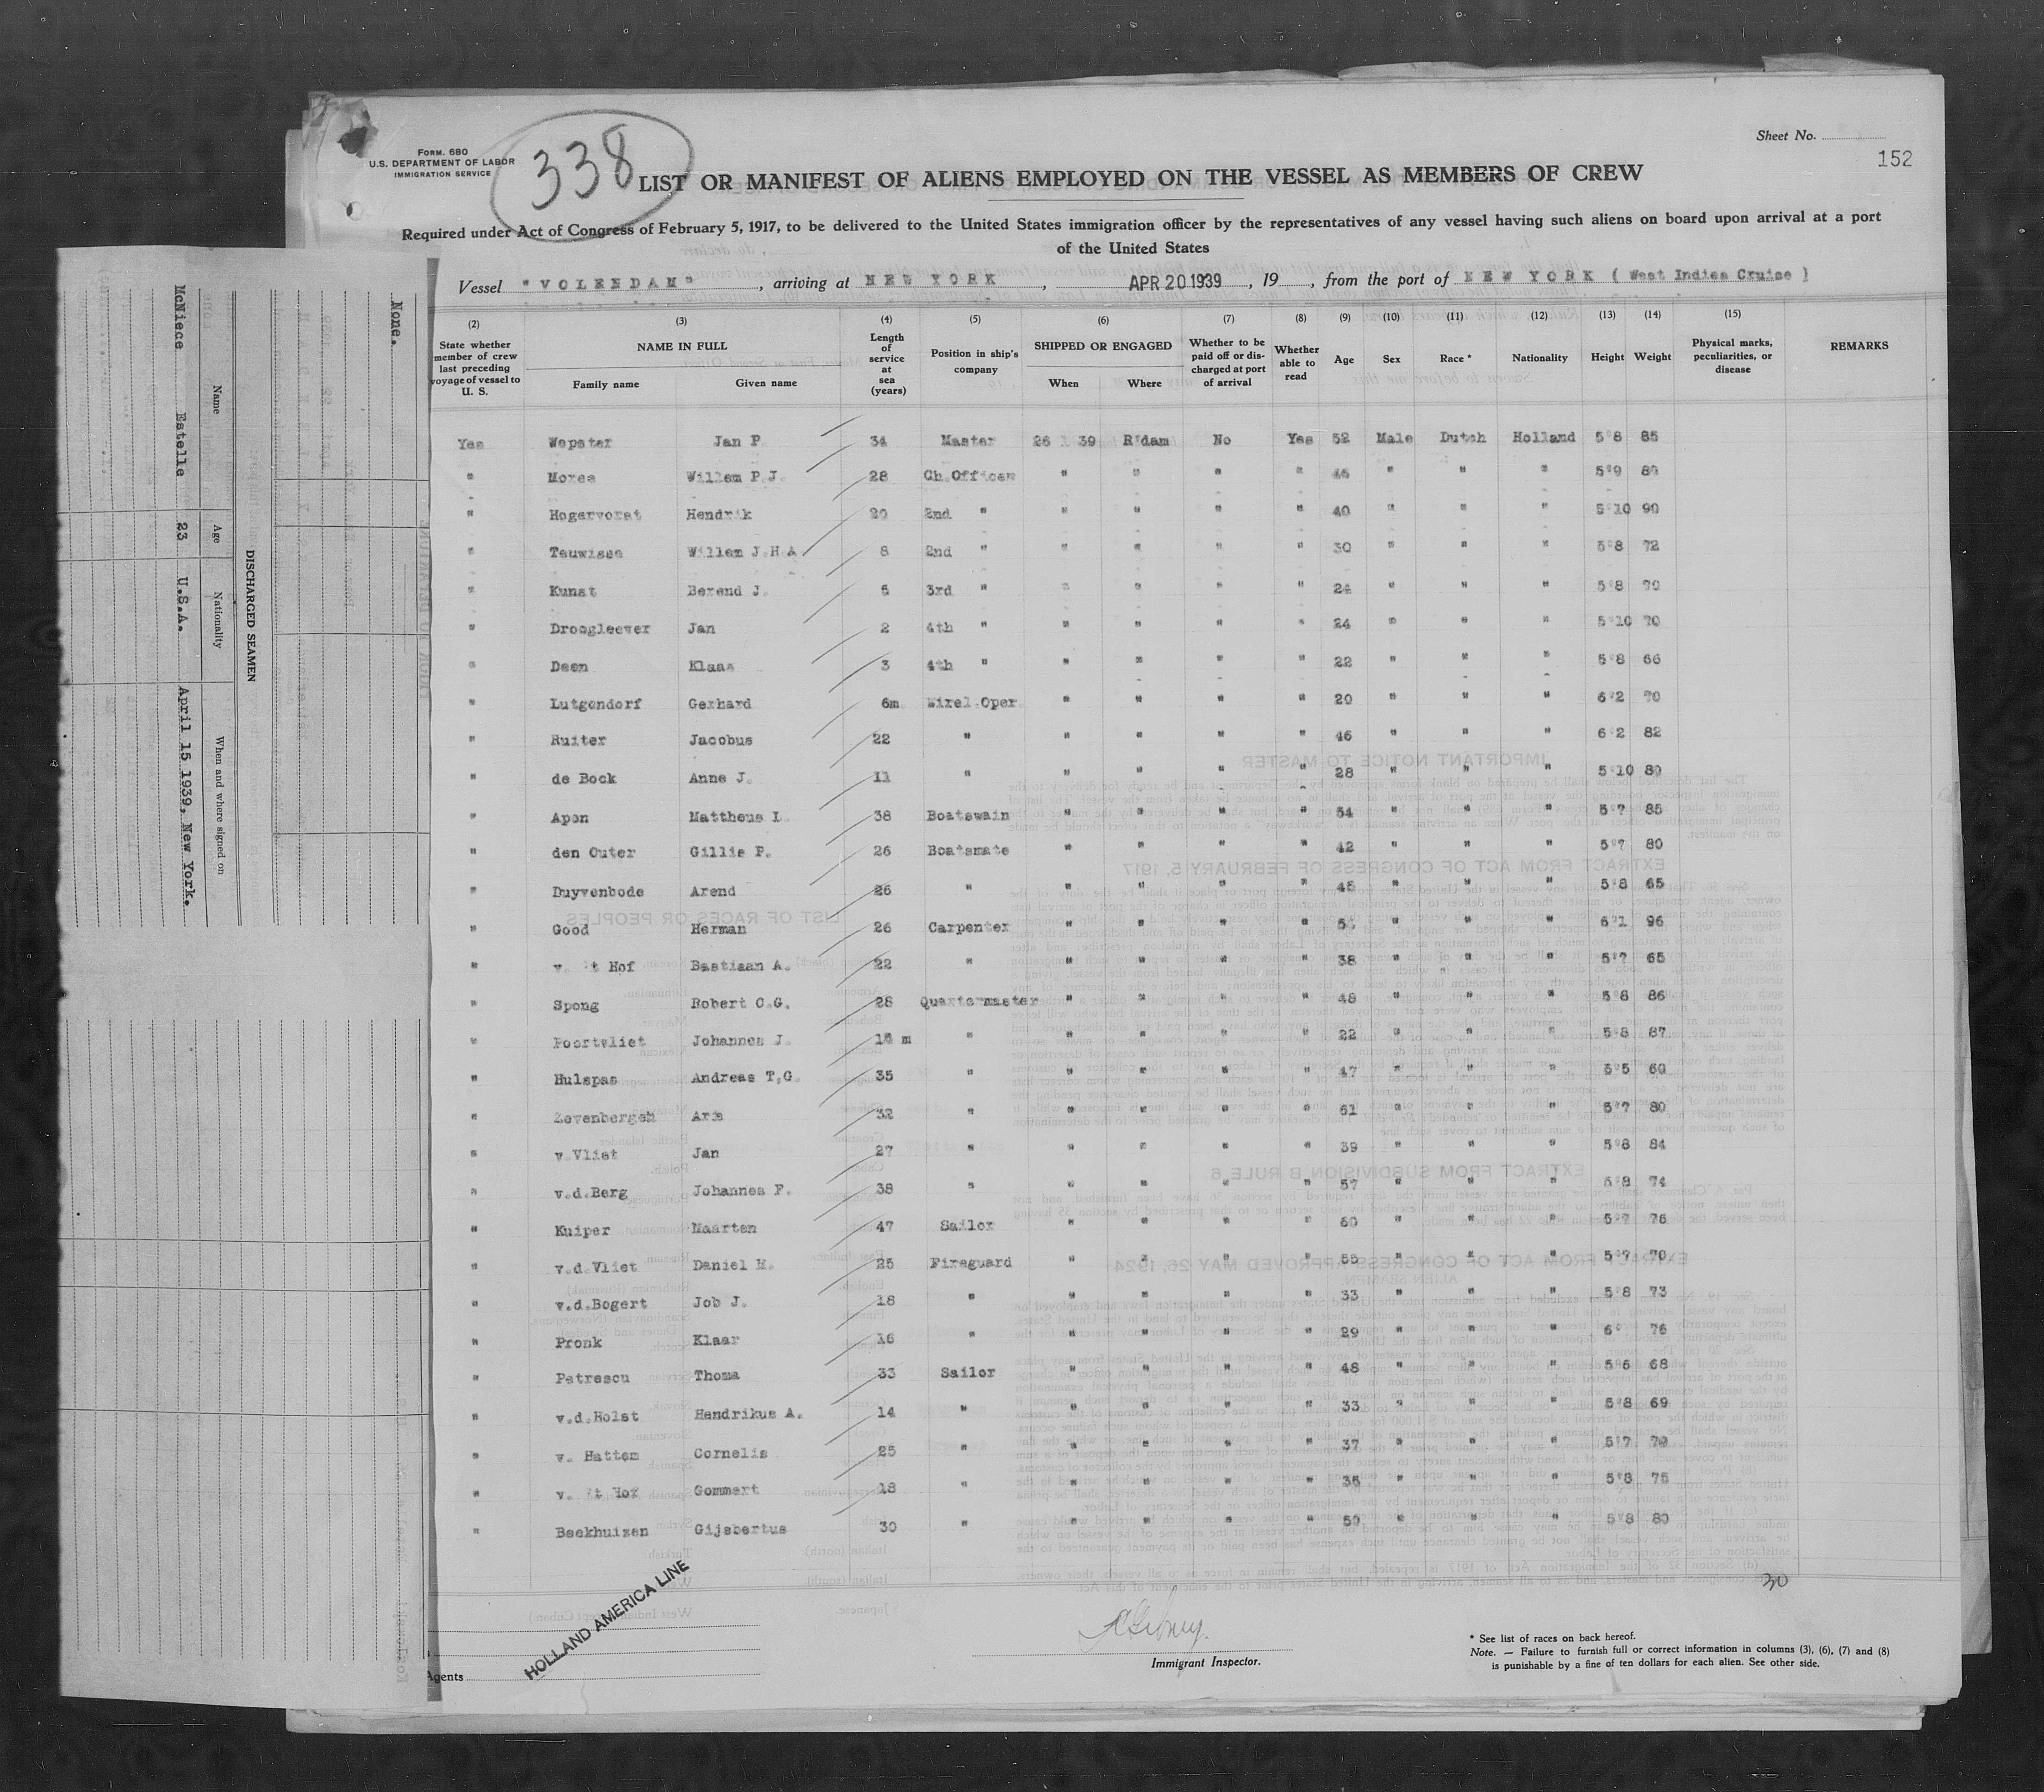 Sheet No.
152
338
FORM. 680
U.S. DEPARTMENT OF LABOR
IMMIGRATION SERVICE
LIST OR MANIFEST OF ALIENS EMPLOYED ON THE VESSEL AS MEMBERS OF CREW
Required under Act of Congress of February 5, 1917, to be delivered to the United States immigration officer by the representatives of any vessel having such aliens on board upon arrival at a port
of the United States
Vessel "VOLENDAM", arriving at NEW YORK, APR 20 1939, 19, from the port of NEW YORK (West Indies Cruise)
(2) (3) (4) (5) (6) (7) (8) (9) (10) (11) (12) (13) (14) (15)
State whether member of crew last preceding voyage of vessel to U. S. NAME IN FULL Family name Given name Length of service at sea (years) Position in ship's company SHIPPED OR ENGAGED When Where Whether to be paid off or discharged at port of arrival Whether able to read Age Sex Race * Nationality Height Weight Physical marks, peculiarities, or disease REMARKS
Yes Wepster Jan P. 34 Master 26 1 39 R'dam No Yes 52 Male Dutch Holland 5'8 85
" Moree Willem P.J. 28 Ch.Officer " " " " 46 " " " 5'9 80
" Hogervorst Hendrik 20 2nd " " " " " 40 " " " 5'10 90
" Teuwisse Willem J.H.A 8 2nd " " " " " 30 " " " 5'8 72
" Kunst Berend J. 5 3rd " " " " " 24 " " " 5'8 70
" Droogleever Jan 2 4th " " " " " 24 " " " 5'10 70
" Deen Klaas 3 4th " " " " " 22 " " " 5'8 66
" Lutgendorf Gerhard 6m Wirel.Oper. " " " " 20 " " " 6'2 70
" Ruiter Jacobus 22 " " " " " 46 " " " 6'2 82
" de Bock Anne J. 11 " " " " " 28 " " " 5'10 80
" Apon Mattheus L. 38 Boatswain " " " " 54 " " " 5'7 85
" den Outer Gillis P. 26 Boatsmate " " " " 42 " " " 5'7 80
" Duyvenbode Arend 26 " " " " " 45 " " " 5'8 65
" Good Herman 26 Carpenter " " " " " " " 6'1 96
" v. 't Hof Bastiaan A. 22 " " " " " 38 " " " 5'7 65
" Spong Robert C.G. 28 Quartermaster " " " " 48 " " " 5'8 86
" Poortvliet Johannes J. m " " " " " 22 " " " 5'8 87
" Hulspas Andreas T.G. 35 " " " " " 47 " " " 5'5 60
" Zevenbergen Arie 32 " " " " " 51 " " " 5'7 80
" v.Vliet Jan 27 " " " " " 39 " " " 5'8 84
" v.d.Berg Johannes F. 38 " " " " " 57 " " " 5'8 74
" Kuiper Maarten 47 Sailor " " " " 60 " " " 5'7 76
" v.d.Vliet Daniel H. 25 Fireguard " " " " 55 " " " 5'7 70
" v.d.Bogert Job J. 18 " " " " " 33 " " " 5'8 73
" Pronk Klaar 16 " " " " " 29 " " " 6' 76
" Petrescu Thoma 33 Sailor " " " " 48 " " " 5'6 68
" v.d.Holst Hendrikus A. 14 " " " " " 33 " " " 5'8 69
" v. Hattem Cornelis 25 " " " " " 37 " " " 5'7 70
" v. 't Hof Gommert 18 " " " " " 36 " " " 5'8 75
" Backhuizen Gijsbertus 30 " " " " " 50 " " " 5'8 80
30
HOLLAND AMERICA LINE
Agents
Immigrant Inspector.
* See list of races on back hereof.
Note. — Failure to furnish full or correct information in columns (3), (6), (7) and (8)
is punishable by a fine of ten dollars for each alien. See other side.
None.
DISCHARGED SEAMEN
Name Age Nationality When and where signed on
McNiece Estelle 23 U.S.A. April 15 1939, New York.